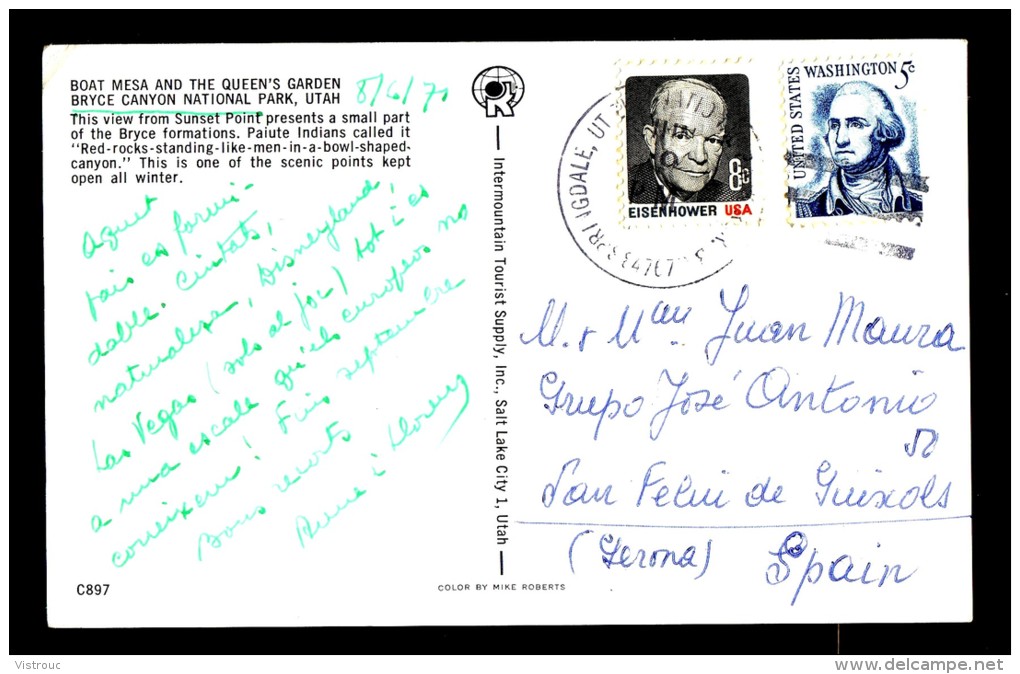 BOAT MESA AND THE QUEEN'S GARDEN
BRYCE CANYON NATIONAL PARK, UTAH
This view from Sunset Point presents a small part
of the Bryce formations. Paiute Indians called it
"Red-rocks-standing-like-men-in-a-bowl-shaped-
canyon." This is one of the scenic points kept
open all winter.
8/6/71
Aquest
país es formi-
dable. Ciutats,
naturalesa, Disneyland,
Las Vegas (solo al joc) tot és
a una escala qu'els europeos no
coneixem! Fins septembre
Bons records
i Llorenç
C897
COLOR BY MIKE ROBERTS
Intermountain Tourist Supply, Inc., Salt Lake City 1, Utah
K
SPRINGDALE, UT
84767
EISENHOWER USA
8c
UNITED STATES
WASHINGTON 5c
M. & Mme Juan Maura
Grupo José Antonio
San Feliu de Guixols
(Gerona) Spain
Vistrouc
delcampe.net